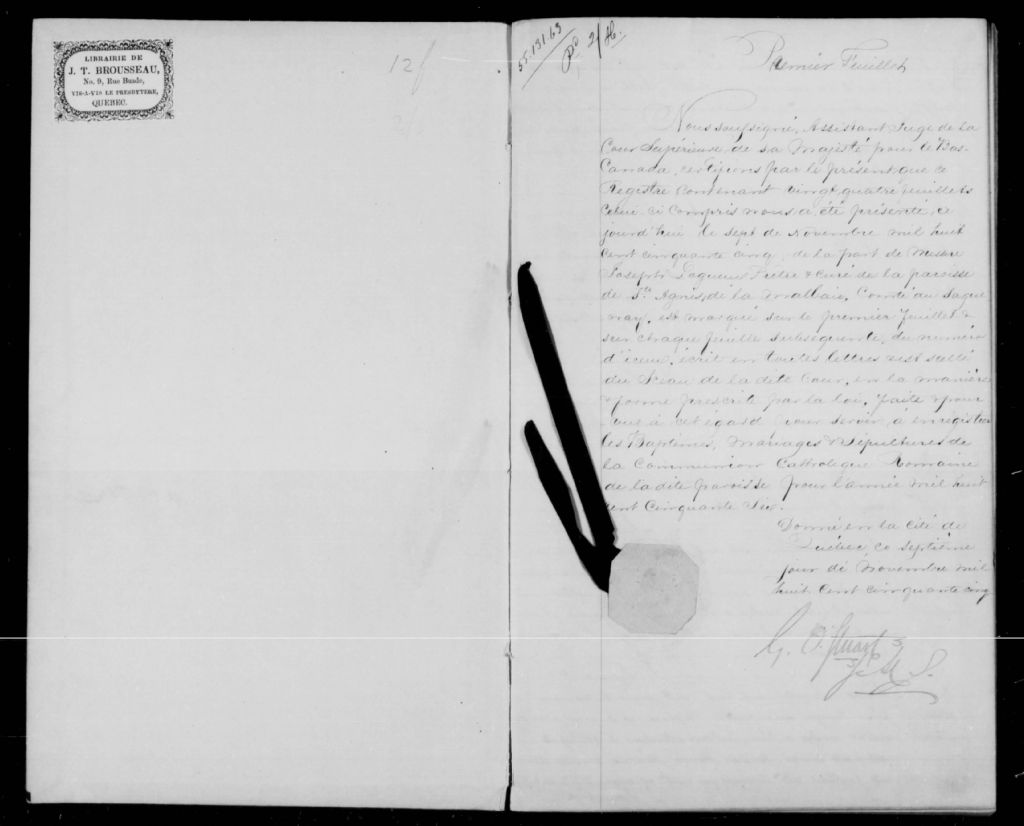 LIBRAIRIE DE
J. T. BROUSSEAU,
No. 9, Rue Buade,
VIS-A-VIS LE PRESBYTERE,
QUEBEC.
12/
2/
55.131.63
Pd 2/
Premier Feuillet
Nous soussigné, Assistant Juge de la
Cour Supérieure, de Sa Majesté pour le Bas-
Canada, certifions par le présent que ce
Registre contenant vingt quatre feuillets
celui-ci compris nous a, été présenté, ce
jourd'hui le sept de Novembre mil huit
cent cinquante cinq, de la part de Messire
Joseph Lagueux Prêtre & Curé de la paroisse
de Ste Agnès, de la Malbaie, Comté du Sague
nay, est marqué sur le premier feuillet &
sur chaque feuille subséquente, du numéro
d'iceux, écrit en toutes lettres & est scellé
du Sceau de la dite Cour, en la manière
& forme prescrite par la loi, faite & pour
vue à cet égard pour servir, à enregistrer
les Baptêmes, Mariages & Sépultures de
la Communion Catholique Romaine
de la dite paroisse pour l'année mil huit
cent cinquante Six.
Donné en la Cité de
Québec, ce septième
jour de Novembre mil
huit cent cinquante cinq
G. O. Stuart